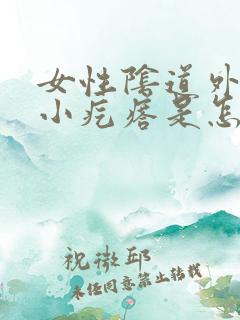 女性阴道外
小疙瘩是怎
祝微邱
未经同意禁止转载